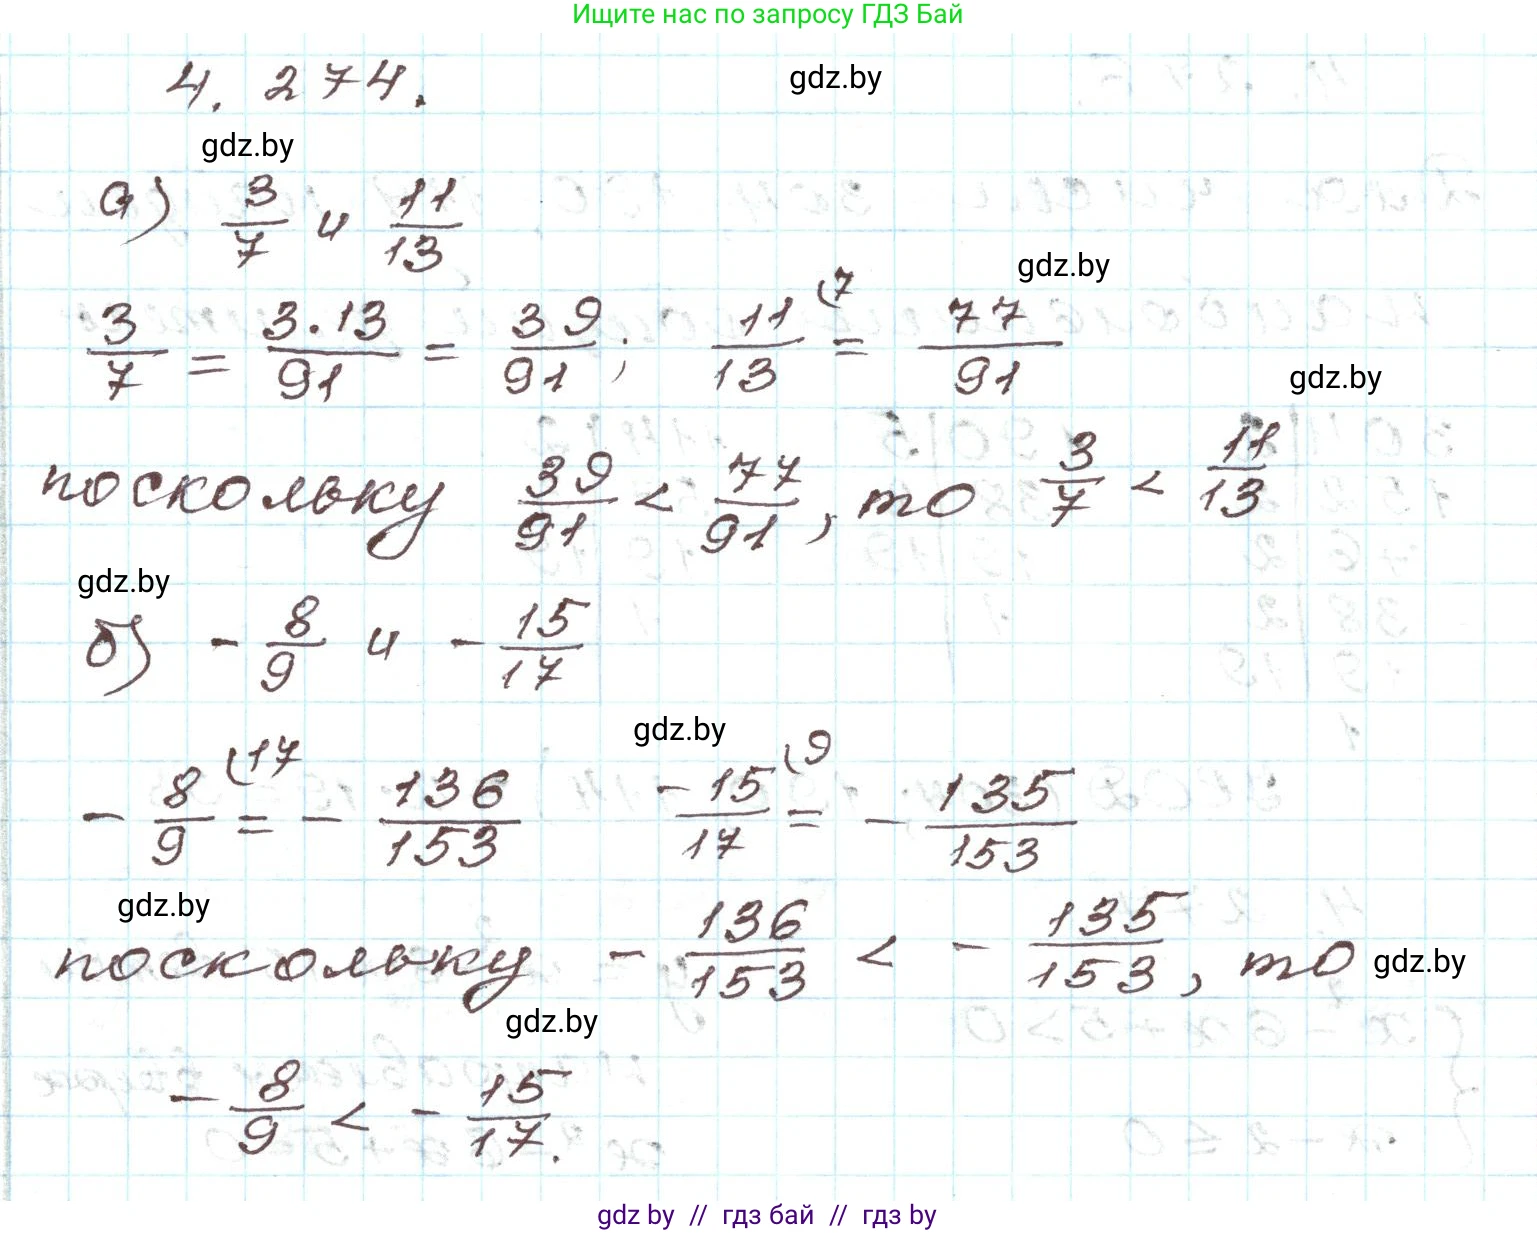 Ищите нас по запросу ГДЗ Бай
4. 274.
gdz.by
gdz.by
а) 3/7 и 11/13
gdz.by
3/7 = 3·13/91 = 39/91; 11/13 (7 = 77/91
gdz.by
поскольку 39/91 < 77/91, то 3/7 < 11/13
gdz.by
б) - 8/9 и - 15/17
gdz.by
- 8/9 (17 = - 136/153 -15/17 (9 = - 135/153
gdz.by
поскольку - 136/153 < - 135/153, то
gdz.by
gdz.by
- 8/9 < - 15/17.
gdz by // гдз бай // гдз by